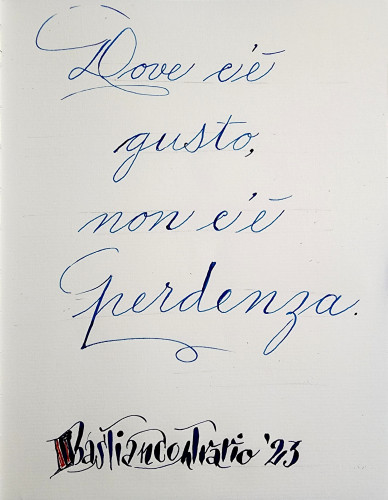 Dove c'è
gusto,
non c'è
perdenza.
Bastiancontrario '23